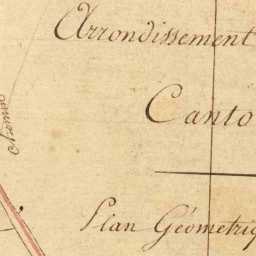 Arrondissement
Canto
Plan Géometriq